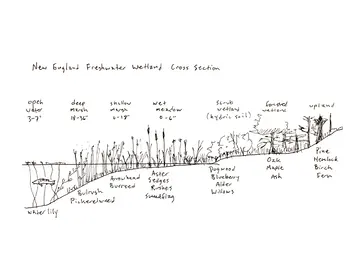 New England Freshwater Wetland Cross Section
open
water
3-7'
deep
marsh
18-36"
shallow
marsh
6-18"
wet
meadow
0-6"
scrub
wetland
(hydric soil)
forested
wetland
upland
water lily
Bulrush
Pickerelweed
Arrowhead
Burreed
Aster
Sedges
Rushes
Dogwood
Blueberry
Alder
Willows
Oak
Maple
Ash
Pine
Hemlock
Birch
Fern